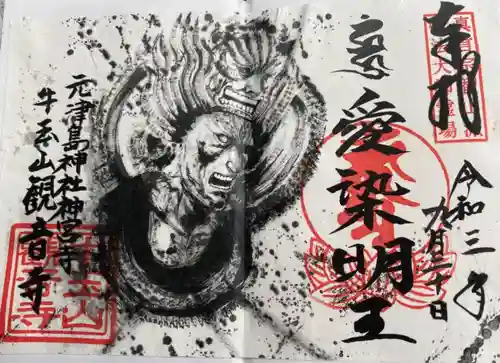 奉拝
令和三年
九月三十日
愛染明王
元津島神社神宮寺
牛玉山観音寺